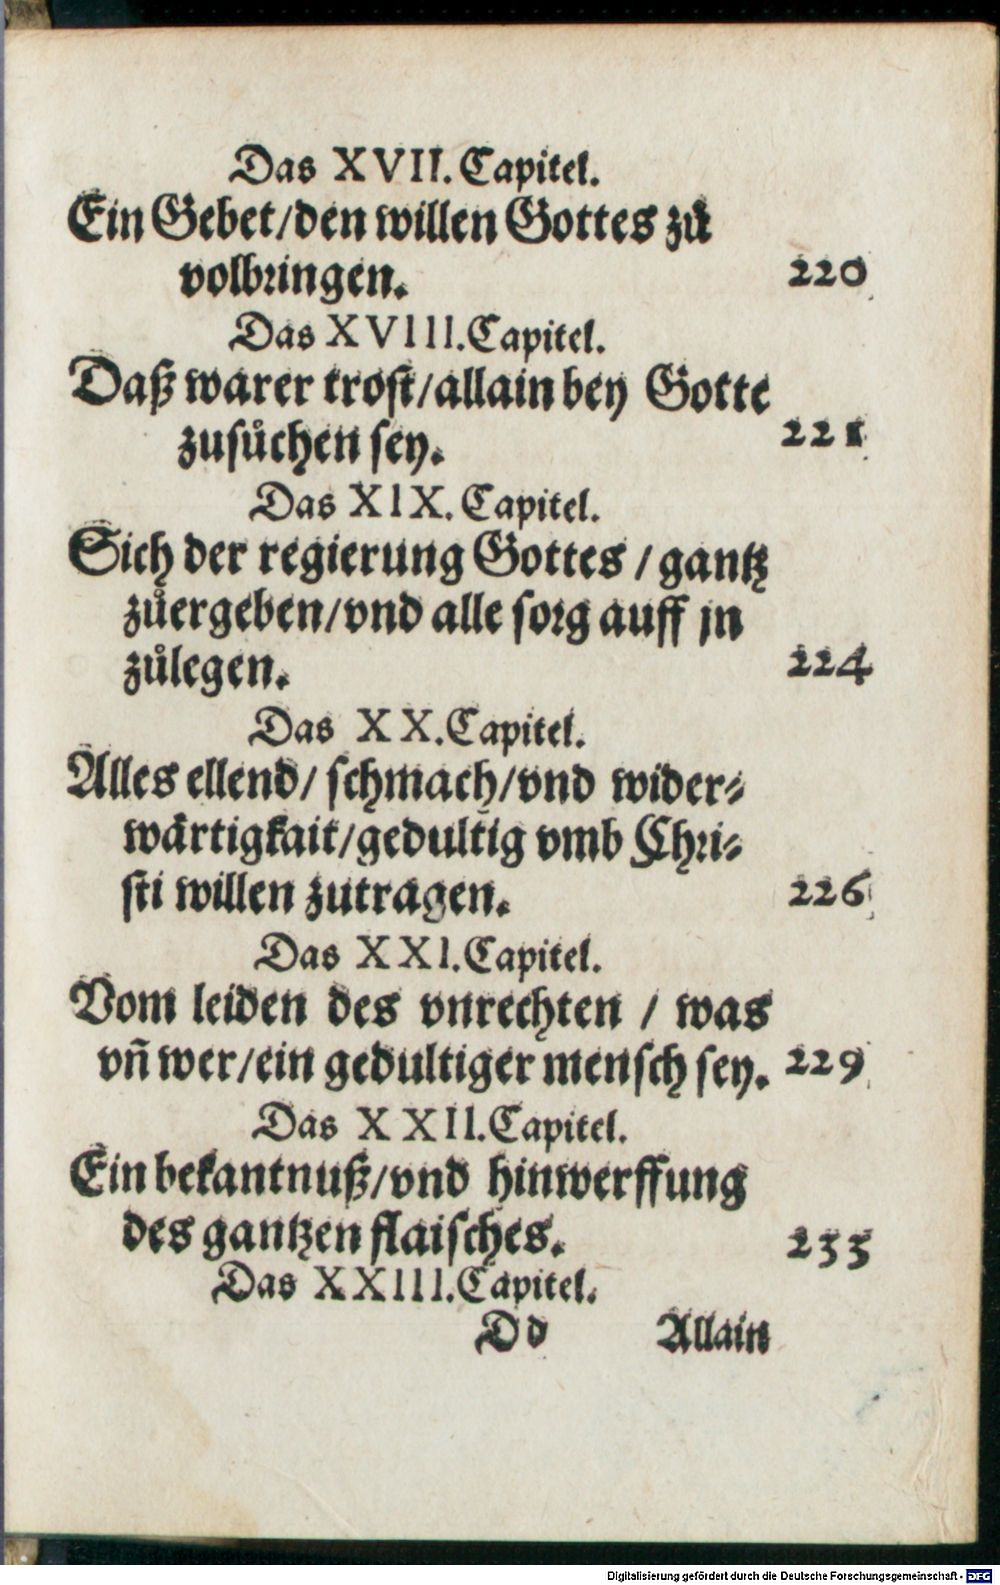 Das XVII. Capitel.
Ein Gebet/den willen Gottes zů
volbringen. 220
Das XVIII. Capitel.
Daß warer trost/allain bey Gotte
zusůchen sey. 221
Das XIX. Capitel.
Sich der regierung Gottes / gantz
zůergeben/vnd alle sorg auff jn
zůlegen. 224
Das XX. Capitel.
Alles ellend/ schmach/vnd wider-
wärtigkait/gedultig vmb Chri-
sti willen zutragen. 226
Das XXI. Capitel.
Vom leiden des vnrechten / was
vñ wer/ein gedultiger mensch sey. 229
Das XXII. Capitel.
Ein bekantnuß/vnd hinwerffung
des gantzen flaisches. 233
Das XXIII. Capitel.
Dd Allain
Digitalisierung gefördert durch die Deutsche Forschungsgemeinschaft - DFG